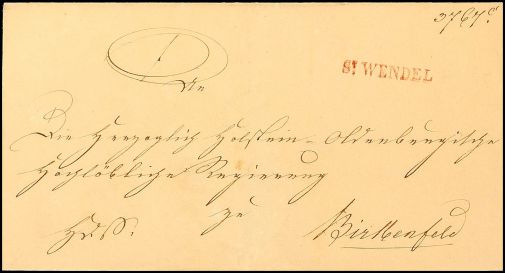 3767 c
ST WENDEL
An
Die Herzoglich Holstein-Oldenburgische
Hochlöbliche Regierung
zu
HDS. Birkenfeld